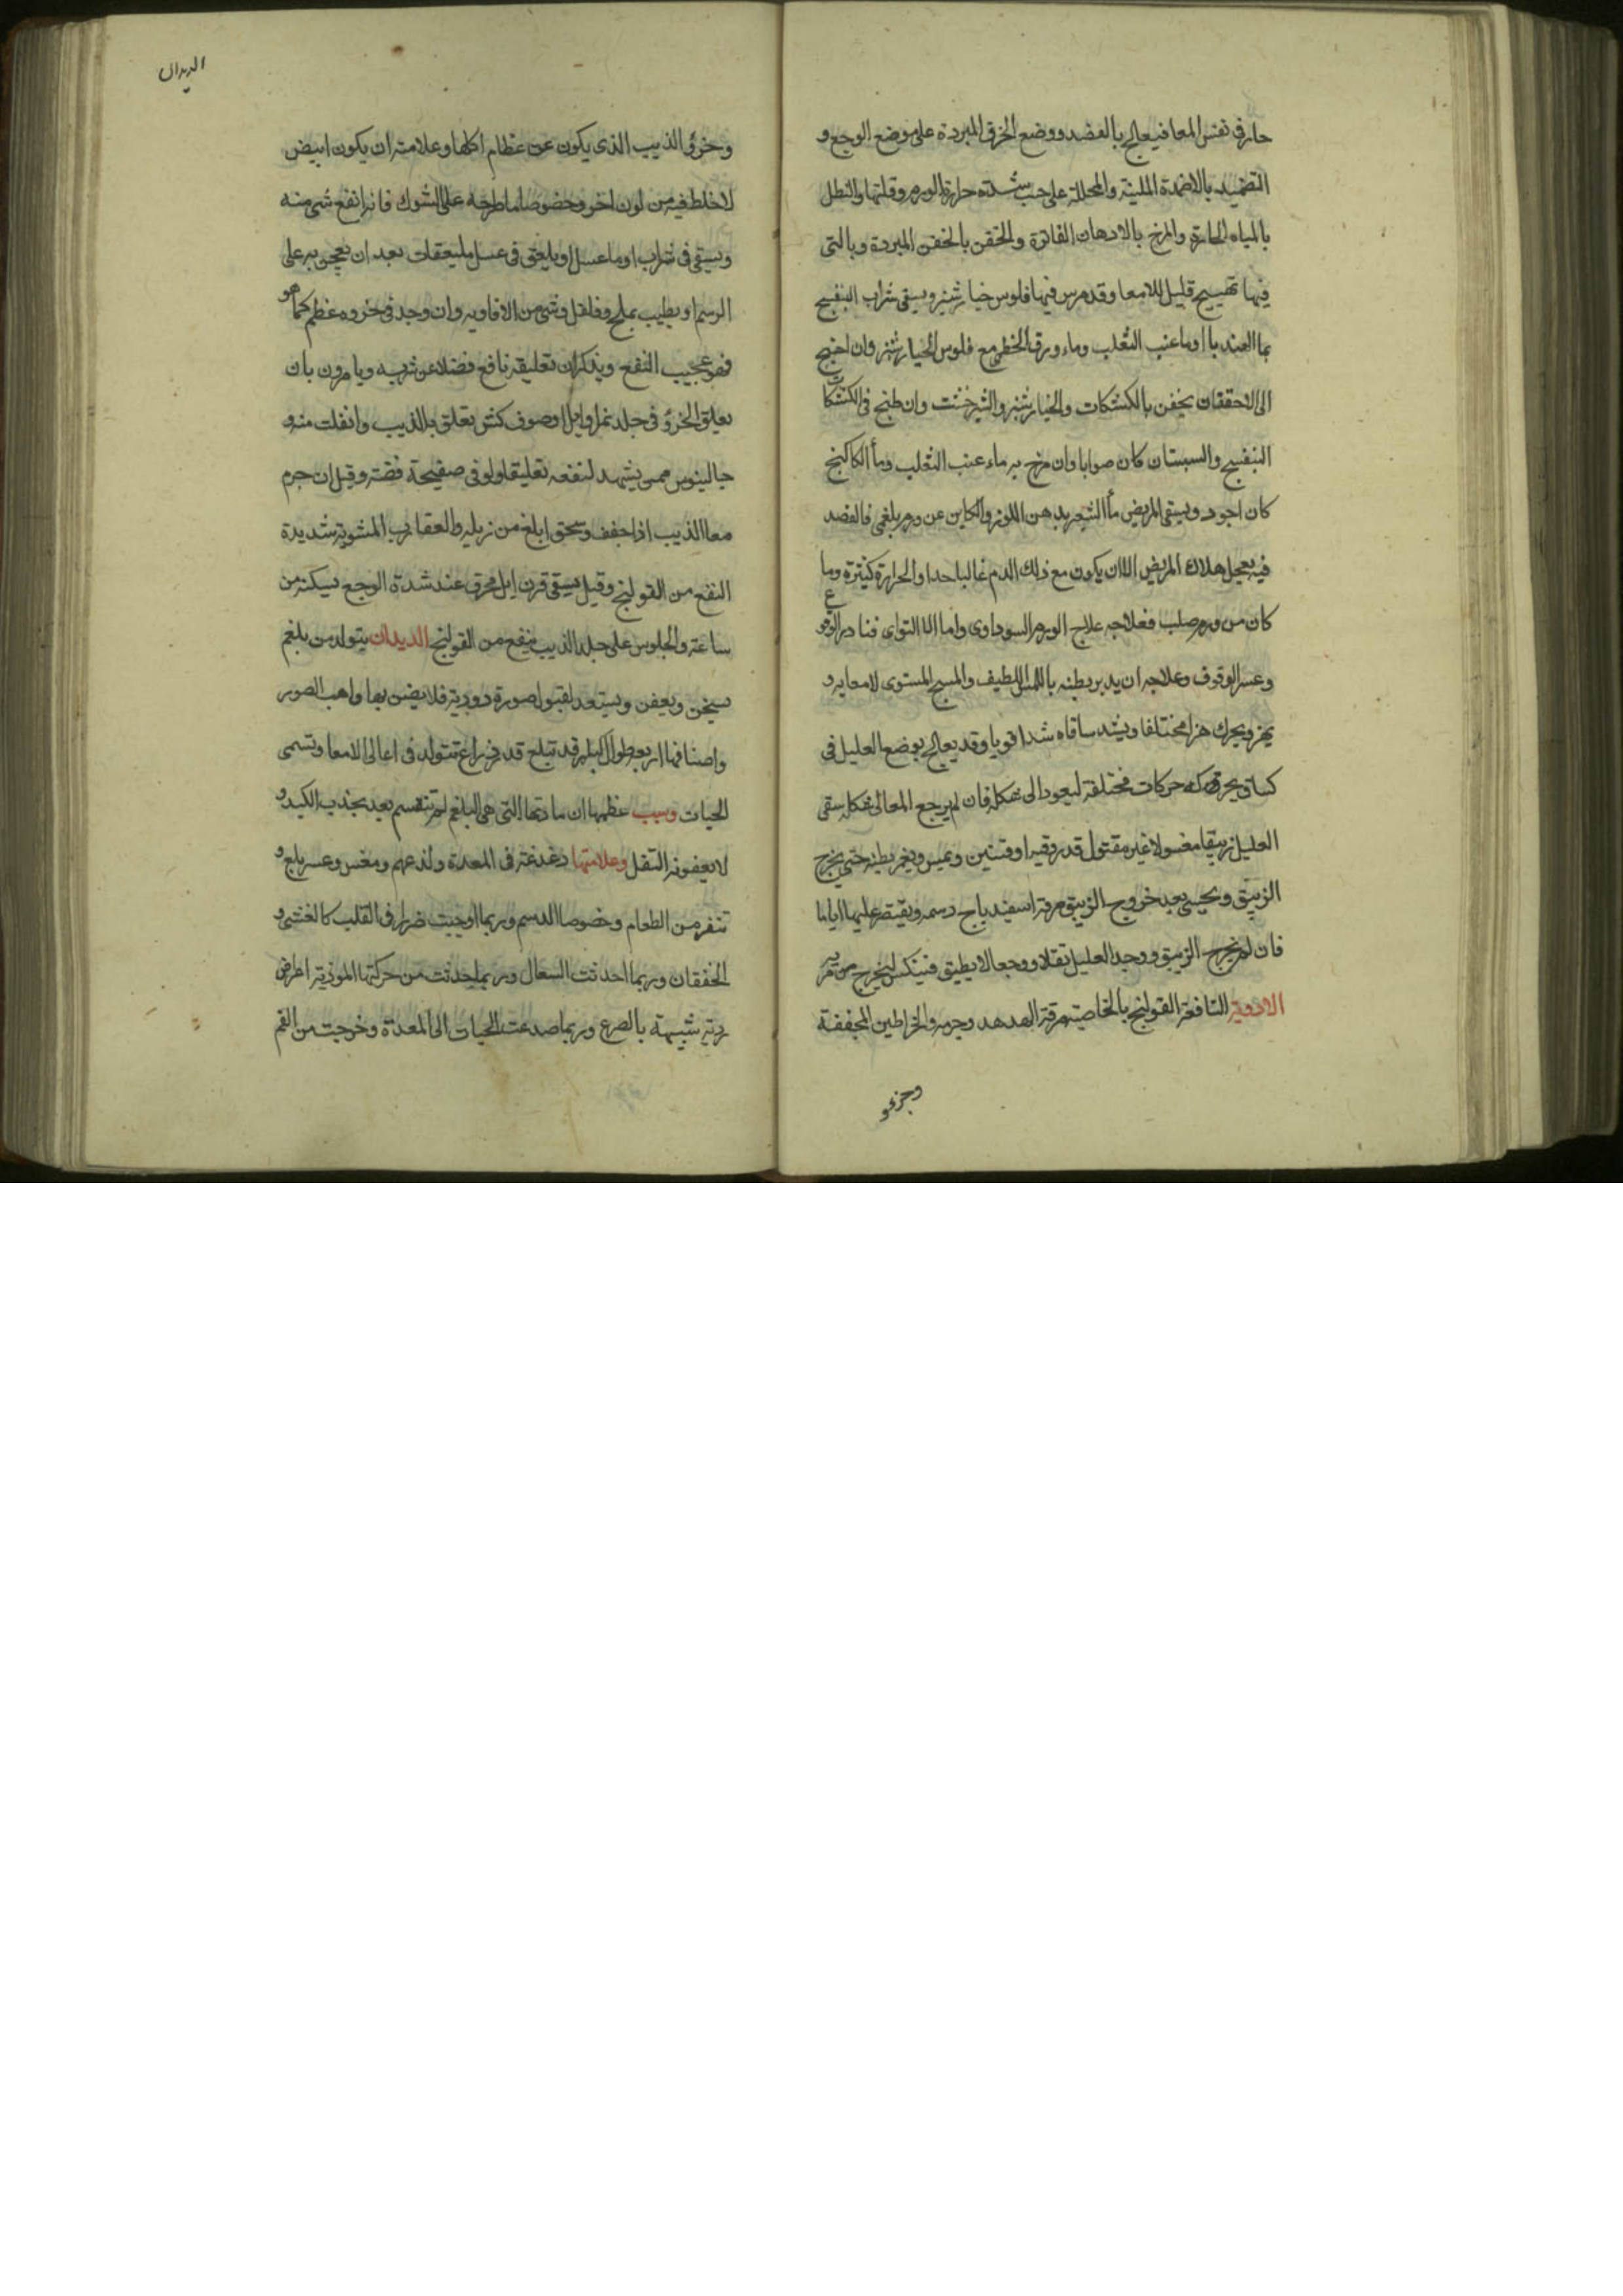 حار فى نفس المعا فيعالج بالفصد ووضع الخرق المبردة على موضع الوجع و
التضميد بالاضمدة الملينة والمحللة على حسب شدته حرارة الورم وقلتها والنطل
بالمياه الحارة والمرخ بالادهان الفاترة والحقن بالحقن المبردة وبالتى
فيها تهييج قليل للامعا وقد مرس فيها فلوس خيار شنبر ويسقى شراب البنفسج
بما الهندبا او ما عنب الثعلب وماء ورق الخطمى مع فلوس الخيار شنبر وان احتيج
الى الاحتقان يحقن بالكشكات والخيار شنبر والشير خشت وان طبخ فى الكشكات
البنفسج والسبستان كان صوابا وان مزج به ماء عنب الثعلب وماء الكاكنج
كان اجود ويسقى المريض ماء الشعير بدهن اللوز والكاين عن ورم بلغمى فالفصد
فيه يعجل هلاك المريض الا ان يكون مع ذلك الدم غالبا حدا والحرارة كثيرة وما
كان من ورم صلب فعلاجه علاج الورم السوداوى واما الالتواى فنادر الوقوع
وعسر الوقوف وعلاجه ان يدبر بطنه باللمس اللطيف والمسح المستوى لامعايه و
يهز ويحرك هزا مختلفا ويشد ساقاه شدا قويا وقد يعالج بوضع العليل فى
كسا ويحركه حركات مختلفة ليعود الى شكله فان لم يرجع المعا الى شكله سقى
العليل زيبقا مغسولا غير مقتول قدر وقية او وقيتين ويمس ويغمز بطنه حتى يخرج
الزيبق ويحسى بعد خروج الزيبق مرقة اسفيدباج دسمه ويقتصر عليها اياما
فان لم يخرج الزيبق ووجد العليل ثقلا ووجعا لا يطيق فينكس ليخرج من فمه
الادوية النافعة القولنج بالخاصية مرقة الهدهد وجرمه والخراطين المجففة
وجزءو
الديدان
وخرؤ الذيب الذى يكون عن عظام اكلها وعلامته ان يكون ابيض
لا خلط فيه من لون اخر وخصوصا ما طرحه على الشوك فانه انفع شى منه
ويسقى فى شراب او ما عسل او يلعق فى عسل ملعقات بعد ان يعجن به على
الرسم او يطيب بملح وفلفل وشى من الافاويه وان وجد فى خروه عظم كما هو
فهو عجيب النفع ويذكر ان تعليقه نافع فضلا عن شربه ويامرون بان
يعلق الخرؤ فى جلد نمر او ايل او صوف كبش تعلق به الذيب وانفلت منه و
جالينوس ممن يشهد لنفعه تعليقا ولو فى صفيحة فضة وقيل ان جرم
معا الذيب اذا جفف وسحق ابلغ من زبله والعقارب المشوية شديدة
النفع من القولنج وقيل يسقى قرن ايل محرق عند شدة الوجع يسكنه من
ساعته والجلوس على جلد الذيب ينفع من القولنج الديدان يتولد من بلغم
يسخن ويعفن ويستعد لقبول صورة دودية فلا يضن بها واهب الصور
واصنافها اربعة طوال كبار قد تبلغ قدر ذراع تتولد فى اعالى الامعا وتسمى
الحيات وسبب عظمها ان مادتها التى هى البلغم لم تنقسم بعد بجذب الكبد و
لا بعفونه الثفل وعلامتها دغدغة فى المعدة ولذعهم ومغس وعسر بلع و
تنفر من الطعام وخصوصا الدسم وربما اوجبت ضرارا فى القلب كالغشى و
الخفقان وربما احدثت السعال وربما احدثت من حركتها الموذية اعراض
ردية شبيهة بالصرع وربما صدعت الحيات الى المعدة وخرجت من الفم